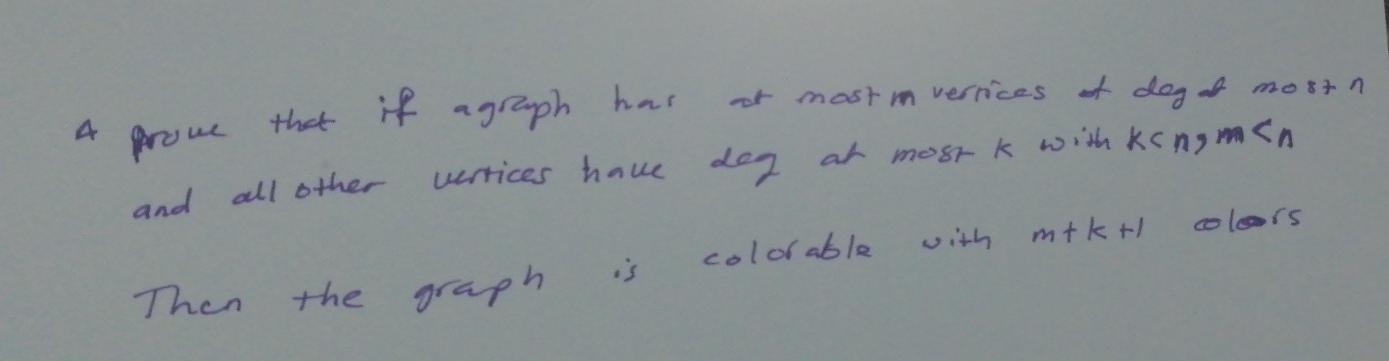 4 prove that if a graph has at most m vertices of deg at most n
and all other vertices have deg at most k with k<n, m<n
Then the graph is colorable with m+k+1 colors